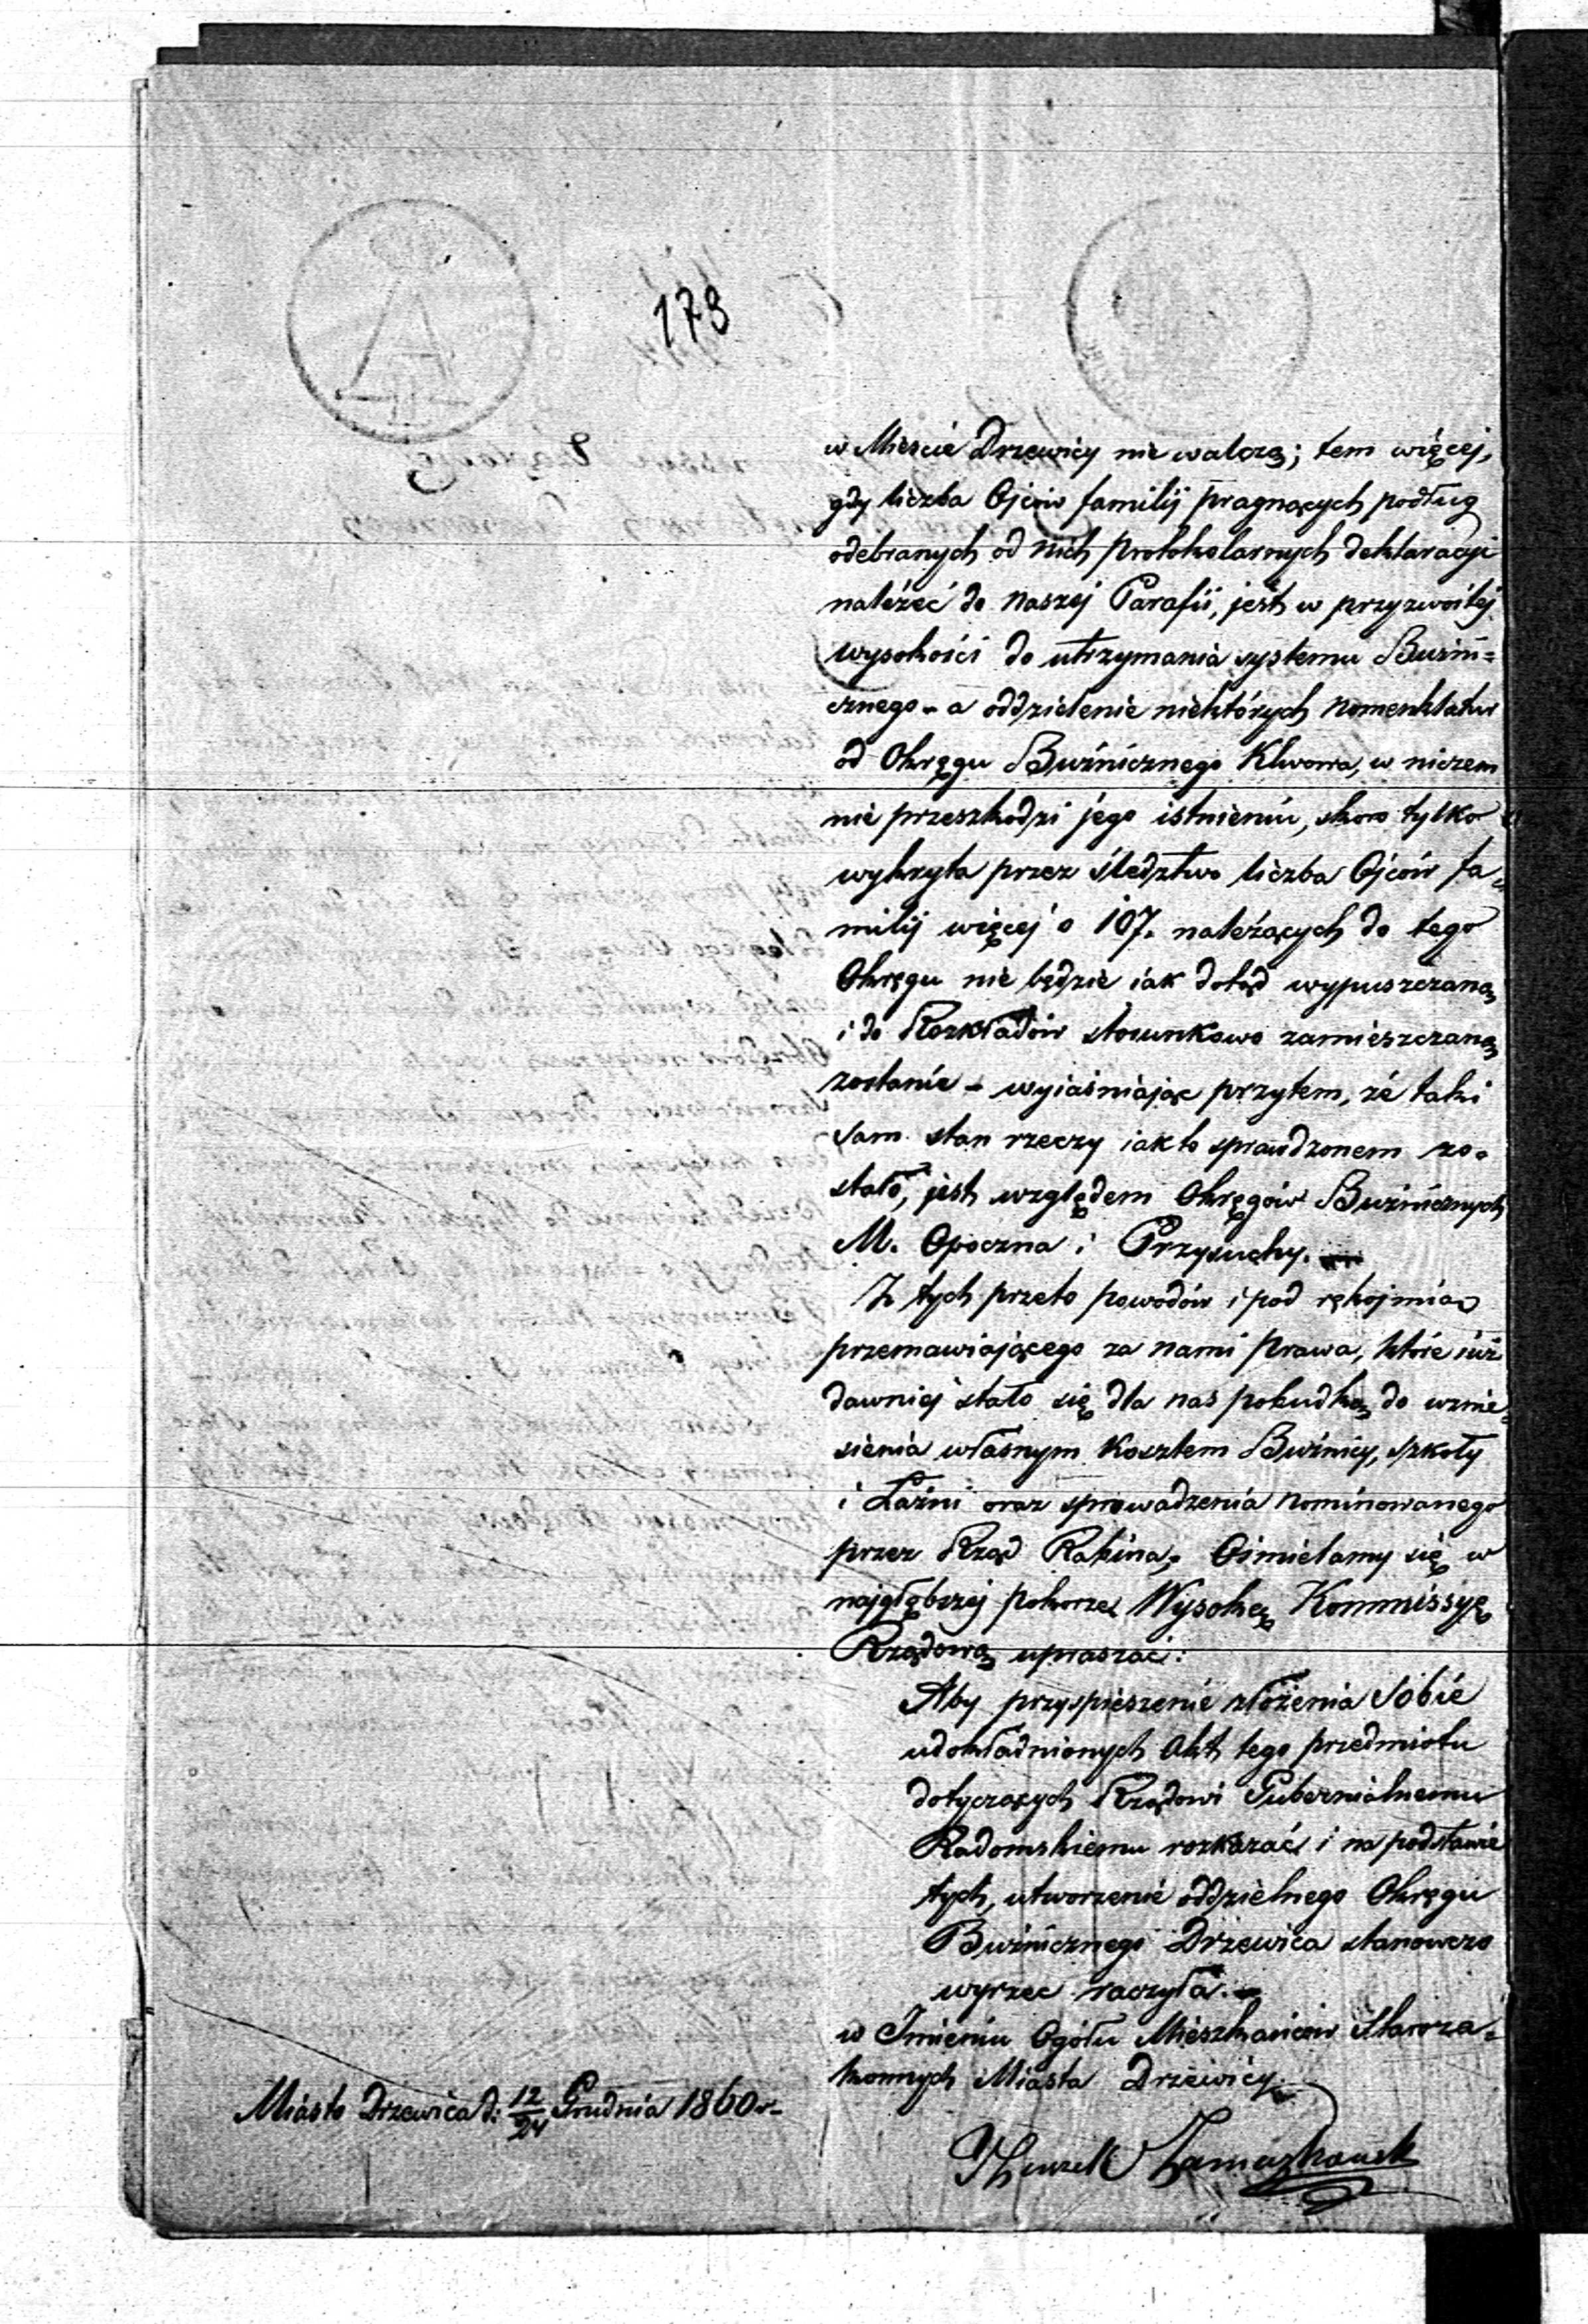 173
w Mieście Drzewicy nie walczą; tem więcej,
gdy liczba Ojców familij pragnących podług
odebranych od nich protokolarnych deklaracyi
należeć do naszej Parafii, jest w przyzwoitej
wysokości do utrzymania systemu Buźni=
cznego - a oddzielenie niektórych nomenklatur
od Okręgu Buźnicznego Klwowa, w niczem
nie przeszkodzi jego istnieniu, skoro tylko
wykryta przez śledztwo liczba Ojców fa=
milij więcej o 107. należących do tego
Okręgu nie będzie iak dotąd wypuszczaną
i do Rozkładów stosunkowo zamieszczaną
zostanie - wyiaśniając przytem, że taki
sam stan rzeczy iak to sprawdzonem zo=
stało, jest względem Okręgów Buźnicznych
M. Opoczna i Przysuchy.
Z tych przeto powodów i pod rękojmią
przemawiającego za nami prawa, które iuż
dawniej stało się dla nas pobudką do wznie=
sienia własnym kosztem Buźnicy, szkoły
i Łaźni oraz sprowadzenia nominowanego
przez Rząd Rabina, Ośmielamy się w
najgłębszej pokorze Wysoką Kommissyę
Rządową upraszać:
Aby przyspieszenie złożenia Sobie
udokładnionych Akt tego przedmiotu
dotyczących Rządowi Gubernialnemu
Radomskiemu rozkazać i na podstawie
tych, utworzenie oddzielnego Okręgu
Buźnicznego Drzewica stanowczo
wyrzec raczyła.
w Imieniu Ogółu Mieszkańców Staroza=
konnych Miasta Drzewicy.
Miasto Drzewica d: 12/24 Grudnia 1860 r.